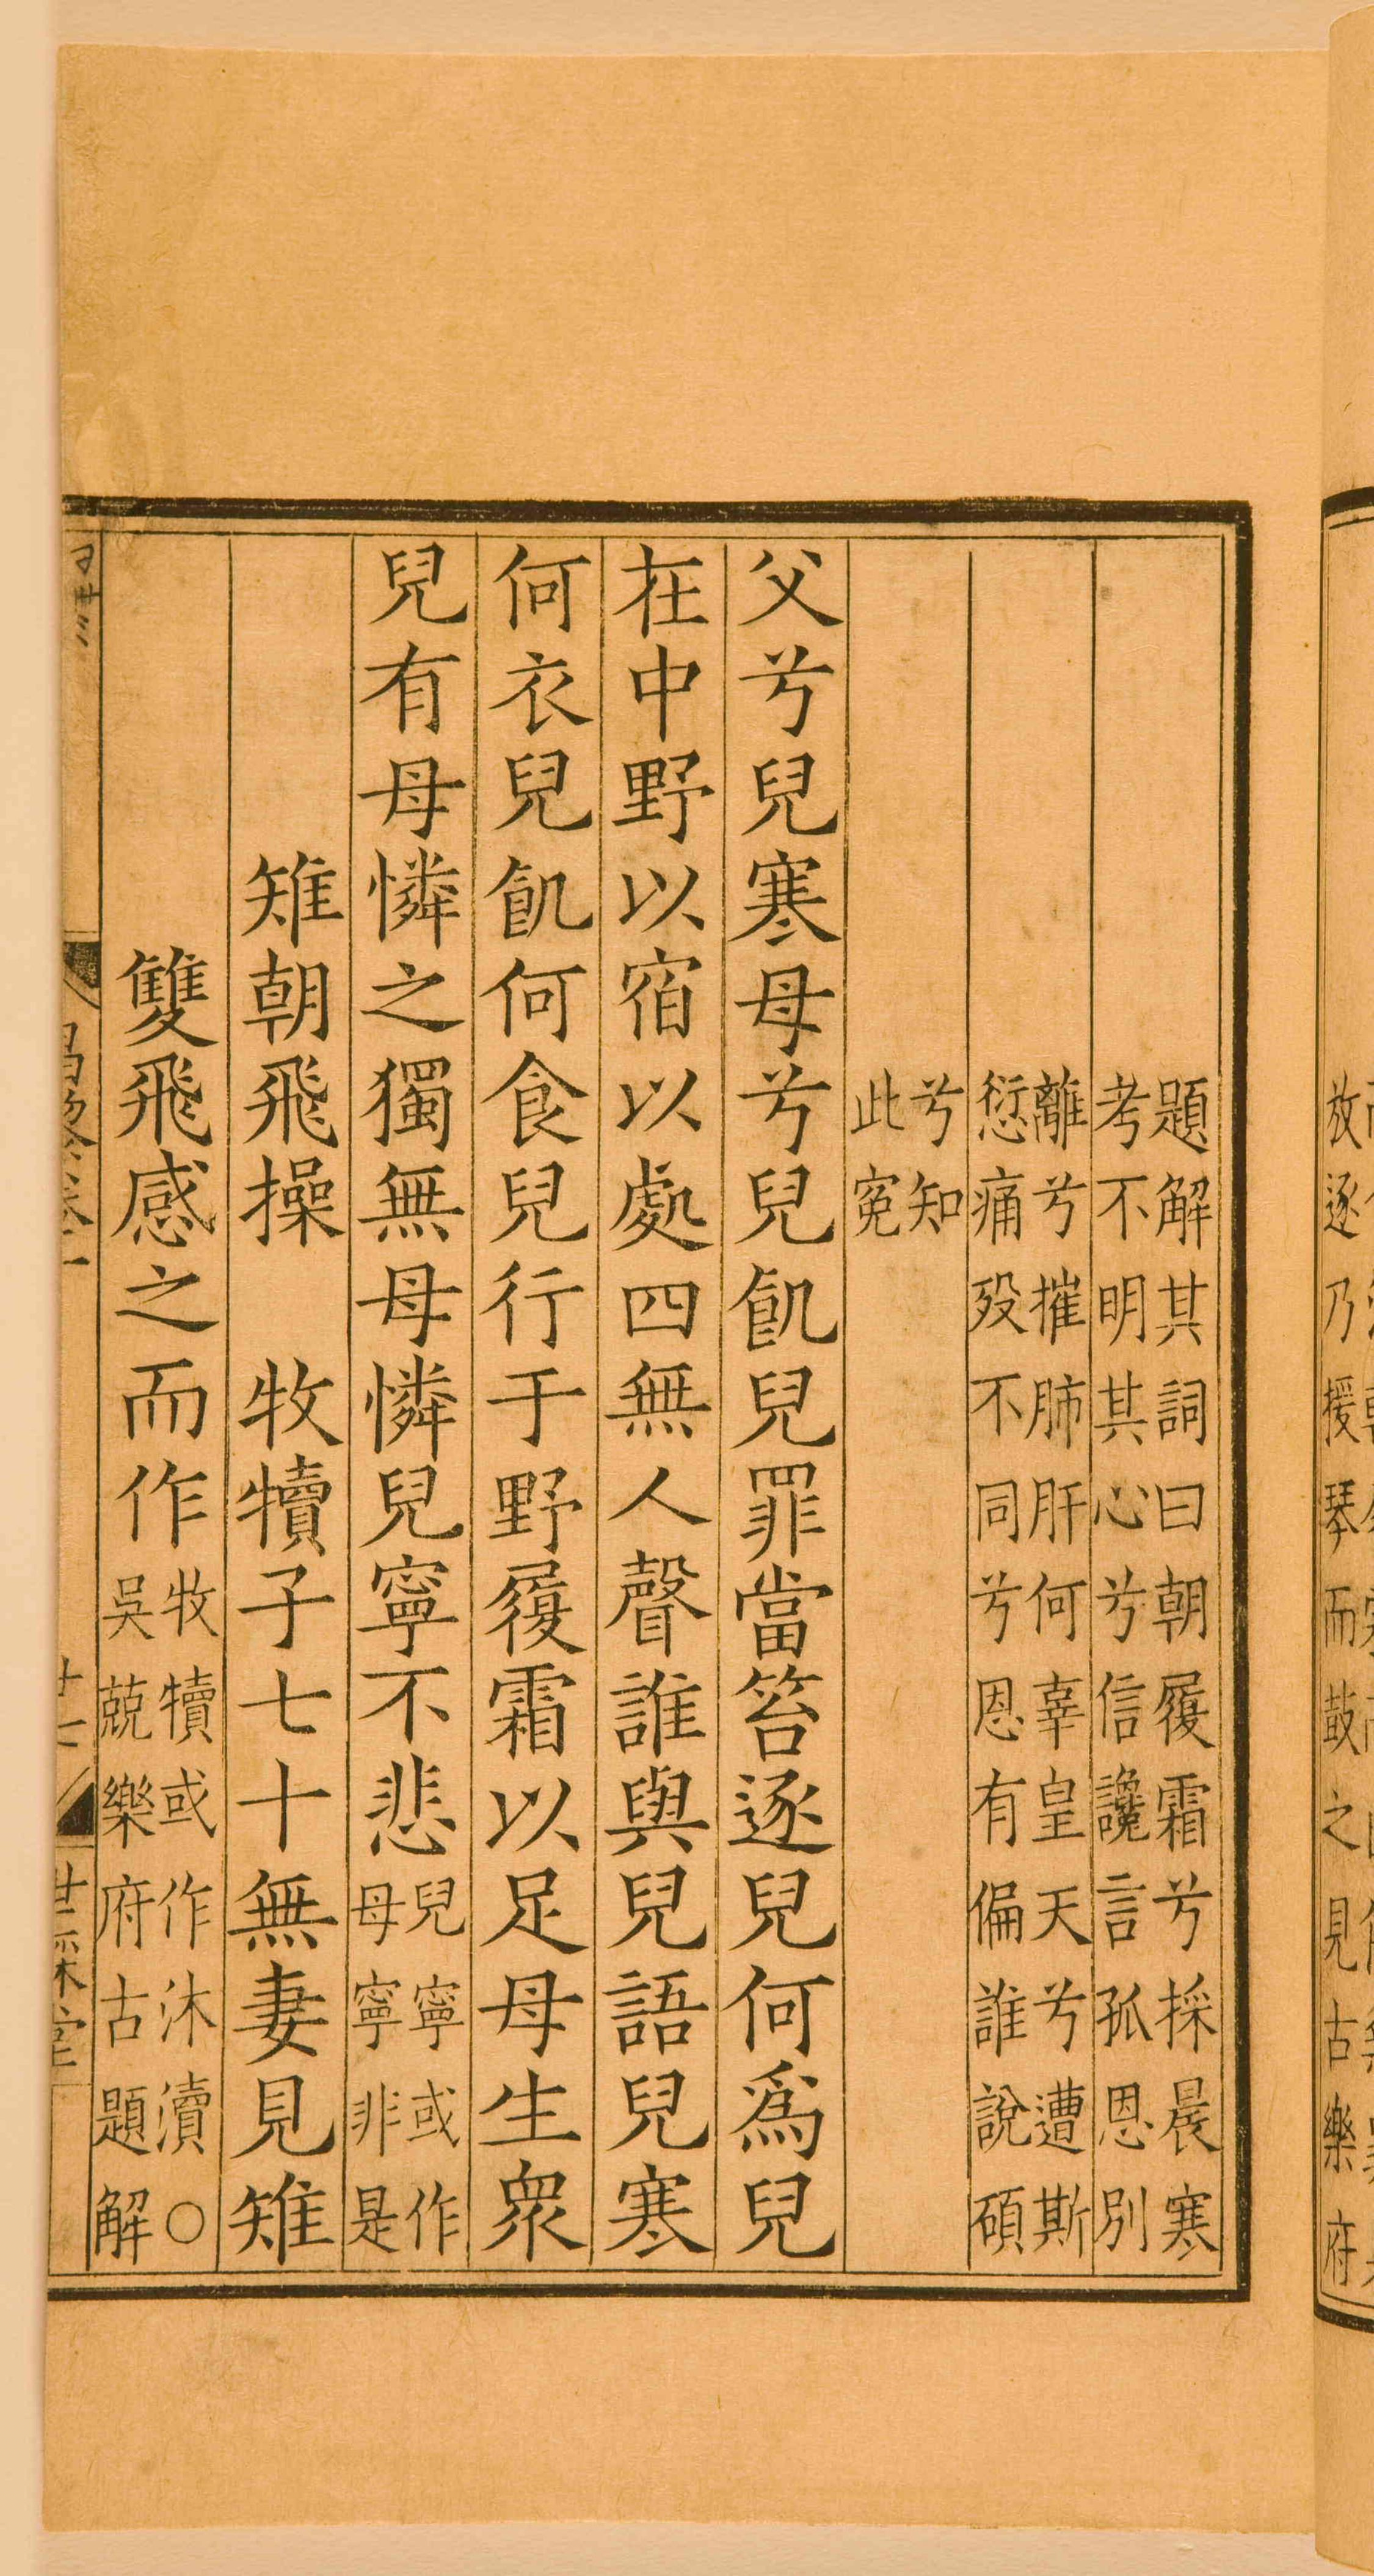 題解其詞曰朝履霜兮採晨寒
考不明其心兮信讒言孤恩別
離兮摧肺肝何辜皇天兮遭斯
愆痛殁不同兮恩有偏誰說碩
兮知
此寃
父兮兒寒母兮兒飢兒罪當笞逐兒何爲兒
在中野以宿以處四無人聲誰與兒語兒寒
何衣兒飢何食兒行于野履霜以足母生衆
兒有母憐之獨無母憐兒寧不悲
兒寧或作
母寧非是
雉朝飛操 牧犢子七十無妻見雉
雙飛感之而作
牧犢或作沐瀆〇
吳兢樂府古題解
昌黎卷一
十一
世綵堂
放逐乃援琴而鼓之見古樂府